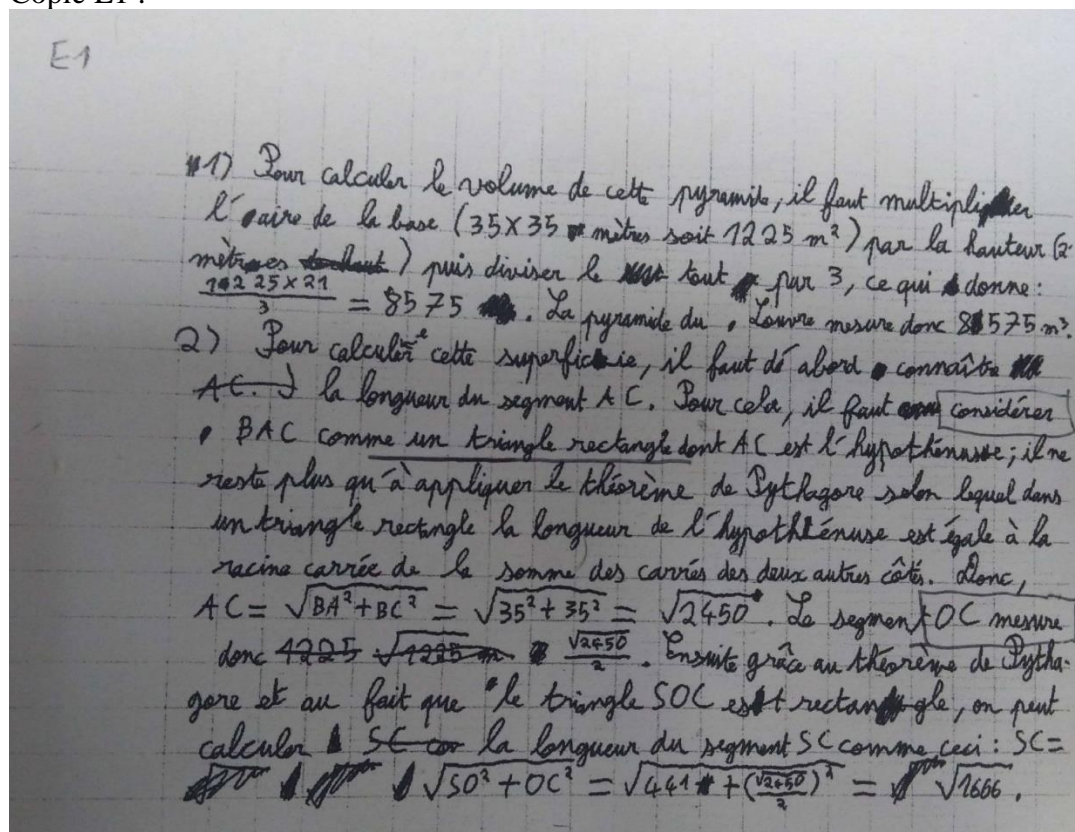 Copie E1 :
E-1
1) Pour calculer le volume de cette pyramide, il faut multiplier
l'aire de la base (35×35 mètres soit 1225 m²) par la hauteur (2
mètres ) puis diviser le tout par 3, ce qui donne :
1225×21/3 = 8575 . La pyramide du Louvre mesure donc 8575 m³.
2) Pour calculer cette superficie, il faut dé abord connaître
AC. la longueur du segment AC. Pour cela, il faut considérer
BAC comme un triangle rectangle dont AC est l'hypothénuse ; il ne
reste plus qu'à appliquer le théorème de Pythagore selon lequel dans
un triangle rectangle la longueur de l'hypothénuse est égale à la
racine carrée de la somme des carrés des deux autres côtés. Donc,
AC = √(BA²+BC²) = √(35²+35²) = √2450. Le segment OC mesure
donc 1225 √1225 m √2450/2. Ensuite grâce au théorème de Pytha-
gore et au fait que le triangle SOC est rectangle, on peut
calculer SC la longueur du segment SC comme ceci : SC =
√(SO²+OC²) = √(441+(√2450/2)²) = √1666.